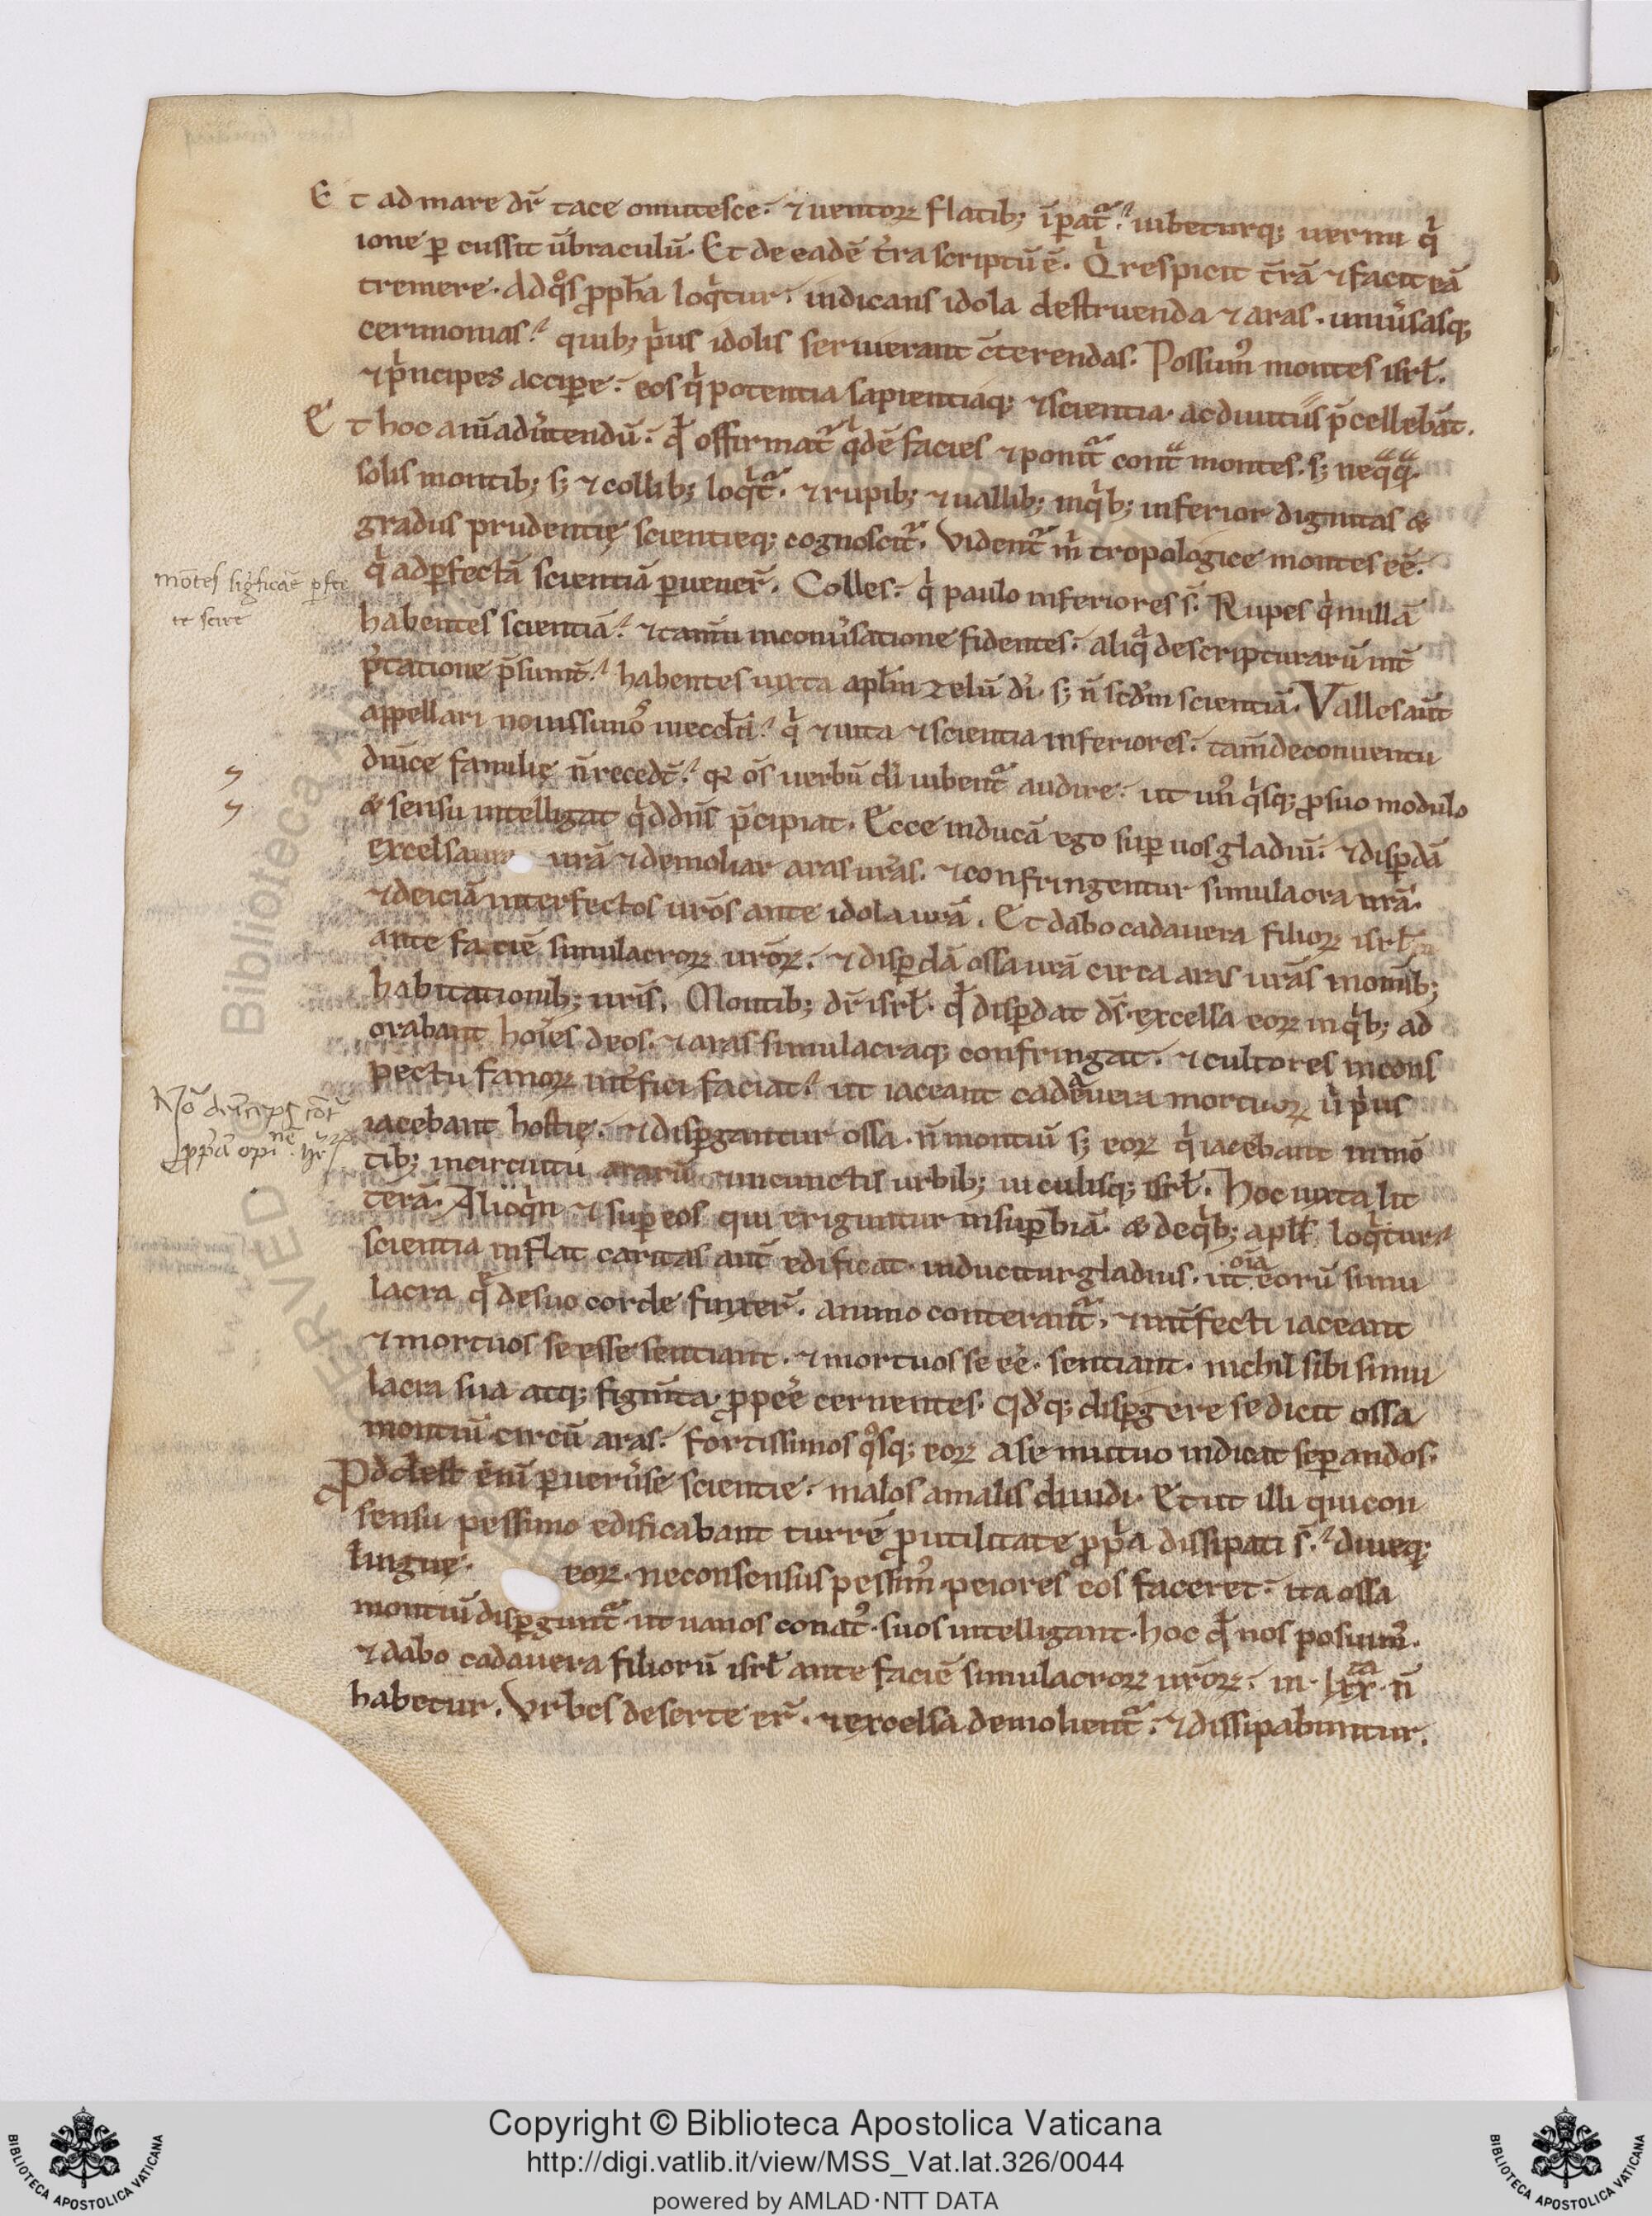 Et ad mare dr̄ tace omutesce· ⁊ uentoꝝ flatib; īꝑat᷑· iubeturq; uermi qͥ
ione ꝑcussit ūbraculū· Et de eadē tr̄a scriptū ē· Qͥ respicit tr̄ā ⁊ facit eā
tremere· Ad qͦs ꝓph̄a loqͥtur· indicans idola destruenda ⁊ aras· uniūsasq;
cerimonias· quib; pͥus idolis seruierant ↄ̄terendas· Possumꝰ montes isrł·
⁊ pͥncipes accipe· eos qͥ potentia sapientiaq; ⁊ scientia· ac diuitiis p̄cellebāt·
Et hoc aīaduͥtendū· qđ offirmat᷑ qͥdē facies ⁊ ponit᷑ contͣ montes· s; neqͣqͣ·
solis montib; s; ⁊ collib; loqͥt᷑· ⁊ rupib; ⁊ uallib; inqͥb; inferior dignitas &
gradus prudentię scientieq; cognoscit᷑· Vident᷑ m̄ tropologice montes eē·
qͥ ad ꝑfectā scientiā ꝑuener̄· Colles· qͥ paulo inferiores s̄· Rupes qͥ nullā
habentes scientiā· ⁊ tam̄ in conuͥsatione fidentes· aliqͣ de scripturarū int̄
p̄tatione p̄sum̄t· habentes iuxta apłm zelū dī· s; n̄ scđm scientiā· Valles aūt
appellari nouissimoͦ ī eccłia· qͥ ⁊ uita ⁊ scientia inferiores· tam̄ de conuentu
dn̄ice familię n̄ recedt̄· qꝛ om̄s uerbū dī iubent᷑ audire· ut unꝰ qͥsq; ꝓ suo modulo
& sensu intelligat qͥd dn̄s p̄cipiat· Ecce inducā ego suꝑ uos gladiū· ⁊ disꝑdā
excelsa ur̄ā ⁊ demoliar aras ur̄as· ⁊ confringentur simulacra ur̄ā·
⁊ deiciā interfectos ur̄os ante idola ur̄ā· Et dabo cadauera filioꝝ isrł
ante faciē simulacroꝝ ur̄oꝝ· ⁊ disꝑdā ossa ur̄ā circa aras ur̄as in om̄ib;
habitationib; ur̄is· Montib; dr̄ isrł· qđ disꝑdat ds̄· excelsa eoꝝ in qͥb; ad
orabant hoīes deos· ⁊ aras simulacraq; confringat· ⁊ cultores in cons
pectu fanoꝝ int̄fici faciat· ut iaceant cadauera mortuoꝝ uͥ pͥus
iacebant hostię· ⁊ disꝑgantur ossa· n̄ montiū s; eoꝝ qͥ iacebant in mō
tib; in circuitu ararū ⁊ in cunctis urbib; uiculisq; isrł· Hoc iuxta lit
terā· Alioqͥn ⁊ suꝑ eos qui eriguntur in suꝑbiā· & de qͥb; apłs loqͥtur
scientia inflat caritas aūt edificat· inducitur gladius· ut oīa eorū simu
lacra qͤ de suo corde finxer̄· animo conterant᷑· ⁊ int̄fecti iaceant
⁊ mortuos se esse sentiant· ⁊ mortuos se eē· sentiant· nichil sibi simu
lacra sua atq; figm̄ta· ꝓpeē cernentes· Qđq; disꝑgere se dicit ossa
montiū circū aras· fortissimos qͦsq; eoꝝ a se mutuo indicat seꝑandos·
Ꝓdest enī ꝑueruͥse scientie· malos a malis diuidi· Et ut illi qui con
sensu pessimo edificabant turrē ꝓ utilitate ꝓpͥa dissipati s̄· diuiseq;
linguę· eoꝝ· ne consensus pessimꝰ peiores eos faceret· ita ossa
montiū disꝑgunt᷑· ut uanos conatꝰ suos intelligant· hoc qđ nos posuimꝰ·
⁊ dabo cadauera filiorū isrł ante faciē simulacroꝝ ur̄oꝝ· in· lxxͭͣ· n̄
habetur· Vrbes deserte er̄t· ⁊ excelsa demolient᷑· ⁊ dissipabuntur·
mōtes sig̾ficāt ꝑfcte
te scire
Nō
Biblioteca
Copyright © Biblioteca Apostolica Vaticana
http://digi.vatlib.it/view/MSS_Vat.lat.326/0044
powered by AMLAD·NTT DATA
BIBLIOTECA APOSTOLICA VATICANA
BIBLIOTECA APOSTOLICA VATICANA